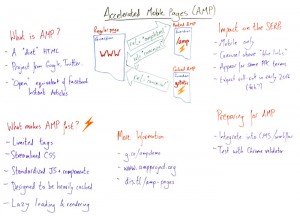 Accelerated Mobile Pages (AMP)
What is AMP?
- A "diet" HTML
- Project from Google, Twitter..
- "Open" equivalent of Facebook
Instant Articles
Regular page
WWW
rel="amphtml"
rel="canonical"
Hosted AMP
/amp
Cached AMP
Impact on the SERP
- Mobile only
- Carousel above "blue links"
- Appear for some terms
- Expect roll out in early 2016
What makes AMP fast?
- Limited tags
- Streamlined CSS
- Standardized JS + components
- Designed to be heavily cached
- Lazy loading & rendering
More Information
- g.co/ampdemo
- www.ampproject.org
- dis.tl/amp-pages
Preparing for AMP
- Integrate into CMS/workflow
- Test with Chrome validator